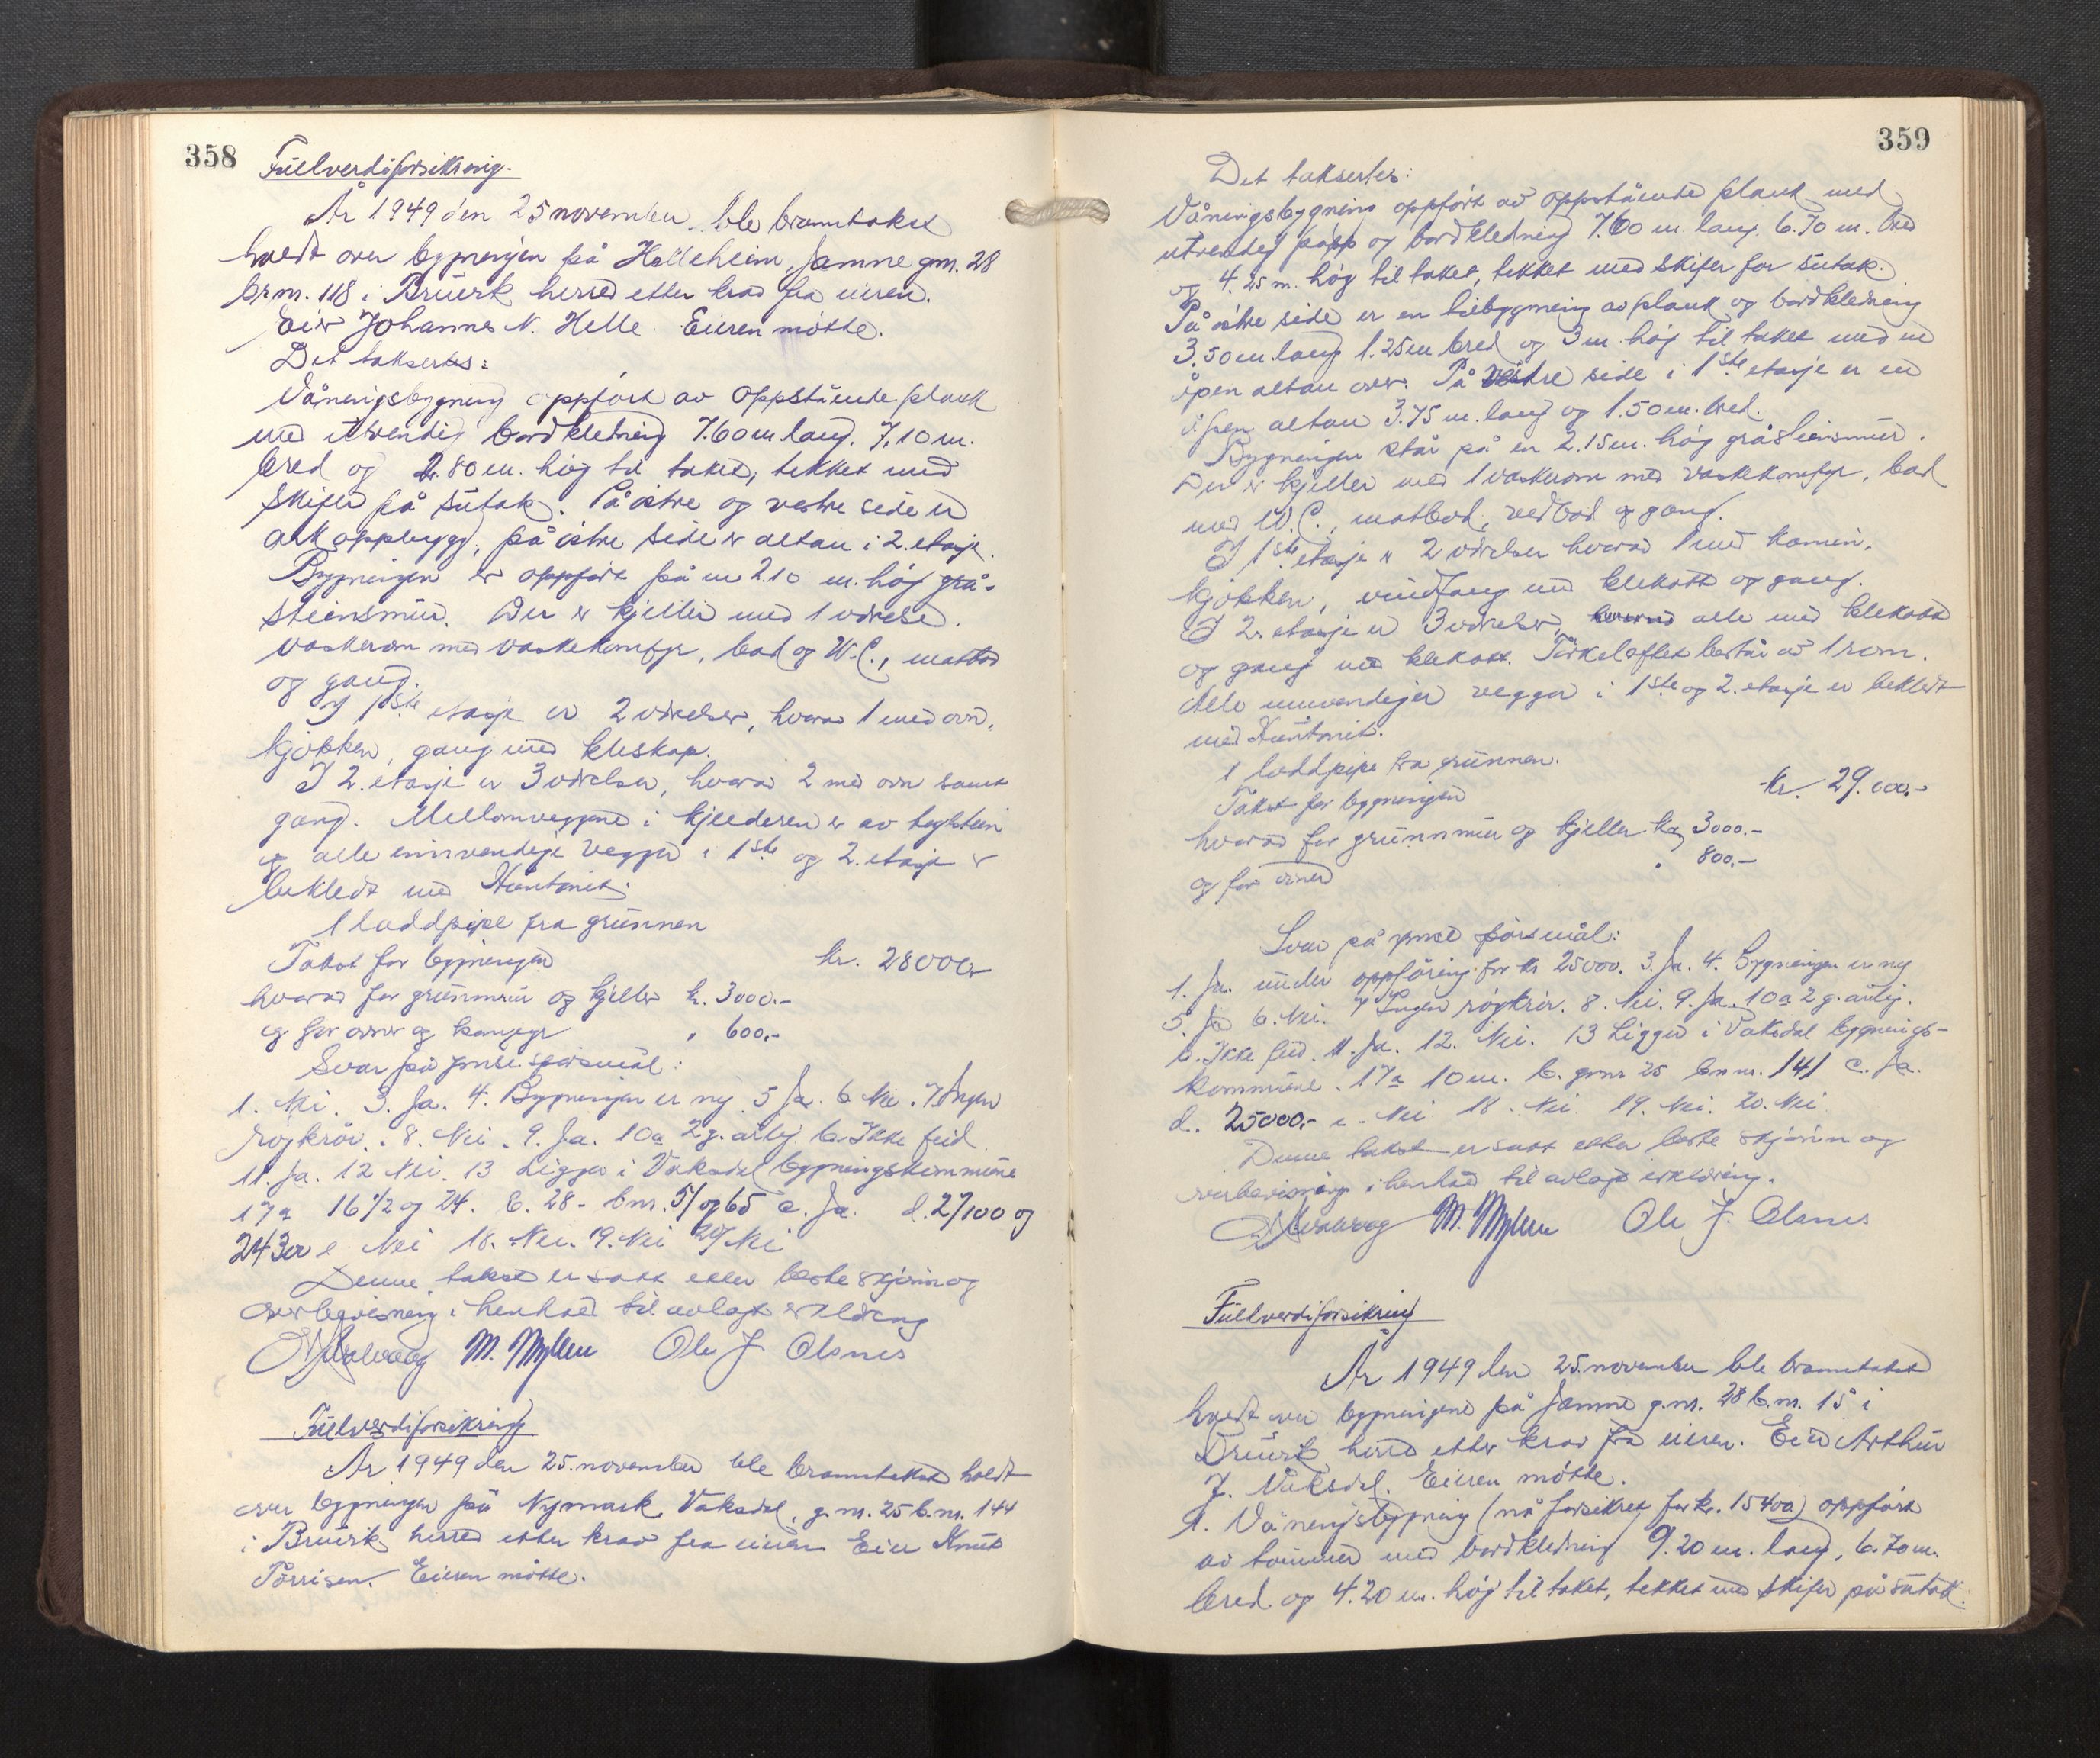 358
Fullverdiforsikring.
År 1949 den 25 november ble branntakst
holdt over bygningen på Helleheim, Jamne gnr. 28
brnr. 118 i Bruvik herred etter krav fra eieren.
Eier Johannes N. Helle. Eieren møtte.
Det takseres:
Våningsbygning oppført av oppstående plank
med utvendig bordkledning 7.60 m lang. 7.10 m.
bred og 2.80 m. høg til taket, tekket med
skifer på sutak. På østre og vestre side er
ark oppbygg, på østre side er altan i 2. etasje.
Bygningen er oppført på en 2.10 m. høg grå-
steinsmur. Der er kjeller med 1 værelse.
vaskerom med vaskekomfyr, bad og W.C., matbod
og gang.
I 1ste etasje er 2 værelser, hvorav 1 med ovn,
kjøkken, gang med kleskap.
I 2. etasje er 3 værelser, hvorav 2 med ovn samt
gang. Mellomveggene i kjelleren er av teglstein
og alle innvendige vegger i 1ste og 2. etasje er
bekledt med Huntonit.
1 loddpipe fra grunnen
Takst for bygningen kr. 28000,-
hvorav for grunnmur og kjeller kr. 3000.-
og for ovner og komfyr " 600.-
Svar på ymse spørsmål:
1. Nei. 3. Ja. 4. Bygningen er ny. 5 Ja. 6 Nei. 7 Ingen
røykrør. 8. Nei. 9. Ja. 10a 2 g. årlig b. Ikke feid.
11. Ja. 12 Nei. 13 Ligger i Vaksdal bygningskommune
17a 16 1/2 og 24. b. 28 - bnr. 51 og 65 c. Ja. d. 27100 og
24300 e Nei 18. Nei. 19. Nei 20 Nei
Denne takst er satt etter beste skjønn og
overbevisning i henhold til avlagt erklæring
M. Myllen Ole J. Olsnes
Fullverdiforsikring
År 1949 den 25. november ble branntakst holdt
over bygningen på Nymark, Vaksdal, g.nr. 25 b.nr. 144
i Bruvik herred etter krav fra eieren Eier Knut
Tørrisen. Eieren møtte.
359
Det takseres:
Våningsbygning oppført av oppstående plank med
utvendig papp og bordkledning 7.60 m. lang. 6.70 m. bred
og 4.25 m. høg til taket, tekket med skifer for sutak.
På østre side er en tilbygning av plank og bordkledning
3.50 m. lang 1.25 m bred og 3 m. høg til taket med en
åpen altan over. På vestre side i 1ste etasje er en
åpen altan 3.75 m. lang og 1.50 m. bred.
Bygningen står på en 2.15 m. høg gråsteinsmur.
Der er kjeller med 1 vaskerom med vaskekomfyr, bad
med W.C., matbod, vedbod og gang.
I 1ste etasje er 2 værelser hvorav 1 med kamin,
kjøkken, vindfang med klekott og gang.
I 2. etasje er 3 værelser, hvorav alle med klekott
og gang med klekott. Tørkeloftet består av 1 rom.
Alle innvendiger vegger i 1ste og 2. etasje er bekledt
med Huntonit.
1 loddpipe fra grunnen.
Takst for bygningen kr. 29.000.-
hvorav for grunnmur og kjeller kr. 3000.-
og for ovner " 800.-
Svar på ymse spørsmål:
1. Ja. under oppføring for kr 25000. 3. Ja. 4. Bygningen er ny
5. Ja 6. Nei. 7 Ingen røykrør. 8. Nei. 9. Ja. 10a 2 g. årlig.
b. Ikke feid. 11. Ja. 12. Nei. 13 Ligger i Vaksdal bygnings-
kommune. 17a 10 m. b. gnr 25 bnr. 141 c. Ja.
d. 25000.- e. Nei 18. Nei 19. Nei. 20. Nei
Denne takst er satt etter beste skjønn og
overbevisning i henhold til avlagt erklæring.
M. Myllen Ole J. Olsnes
Fullverdiforsikring
År 1949 den 25. november ble branntakst
holdt over bygningene på Jamne g.nr. 28 b.nr. 15 i
Bruvik herred etter krav fra eieren. Eier Arthur
J. Vaksdal. Eieren møtte.
1. Våningsbygning (nå forsikret for kr. 15400) oppført
av tømmer med bordkledning 9.20 m. lang, 6.70 m.
bred og 4.20 m. høg til taket, tekket med skifer på sutak.